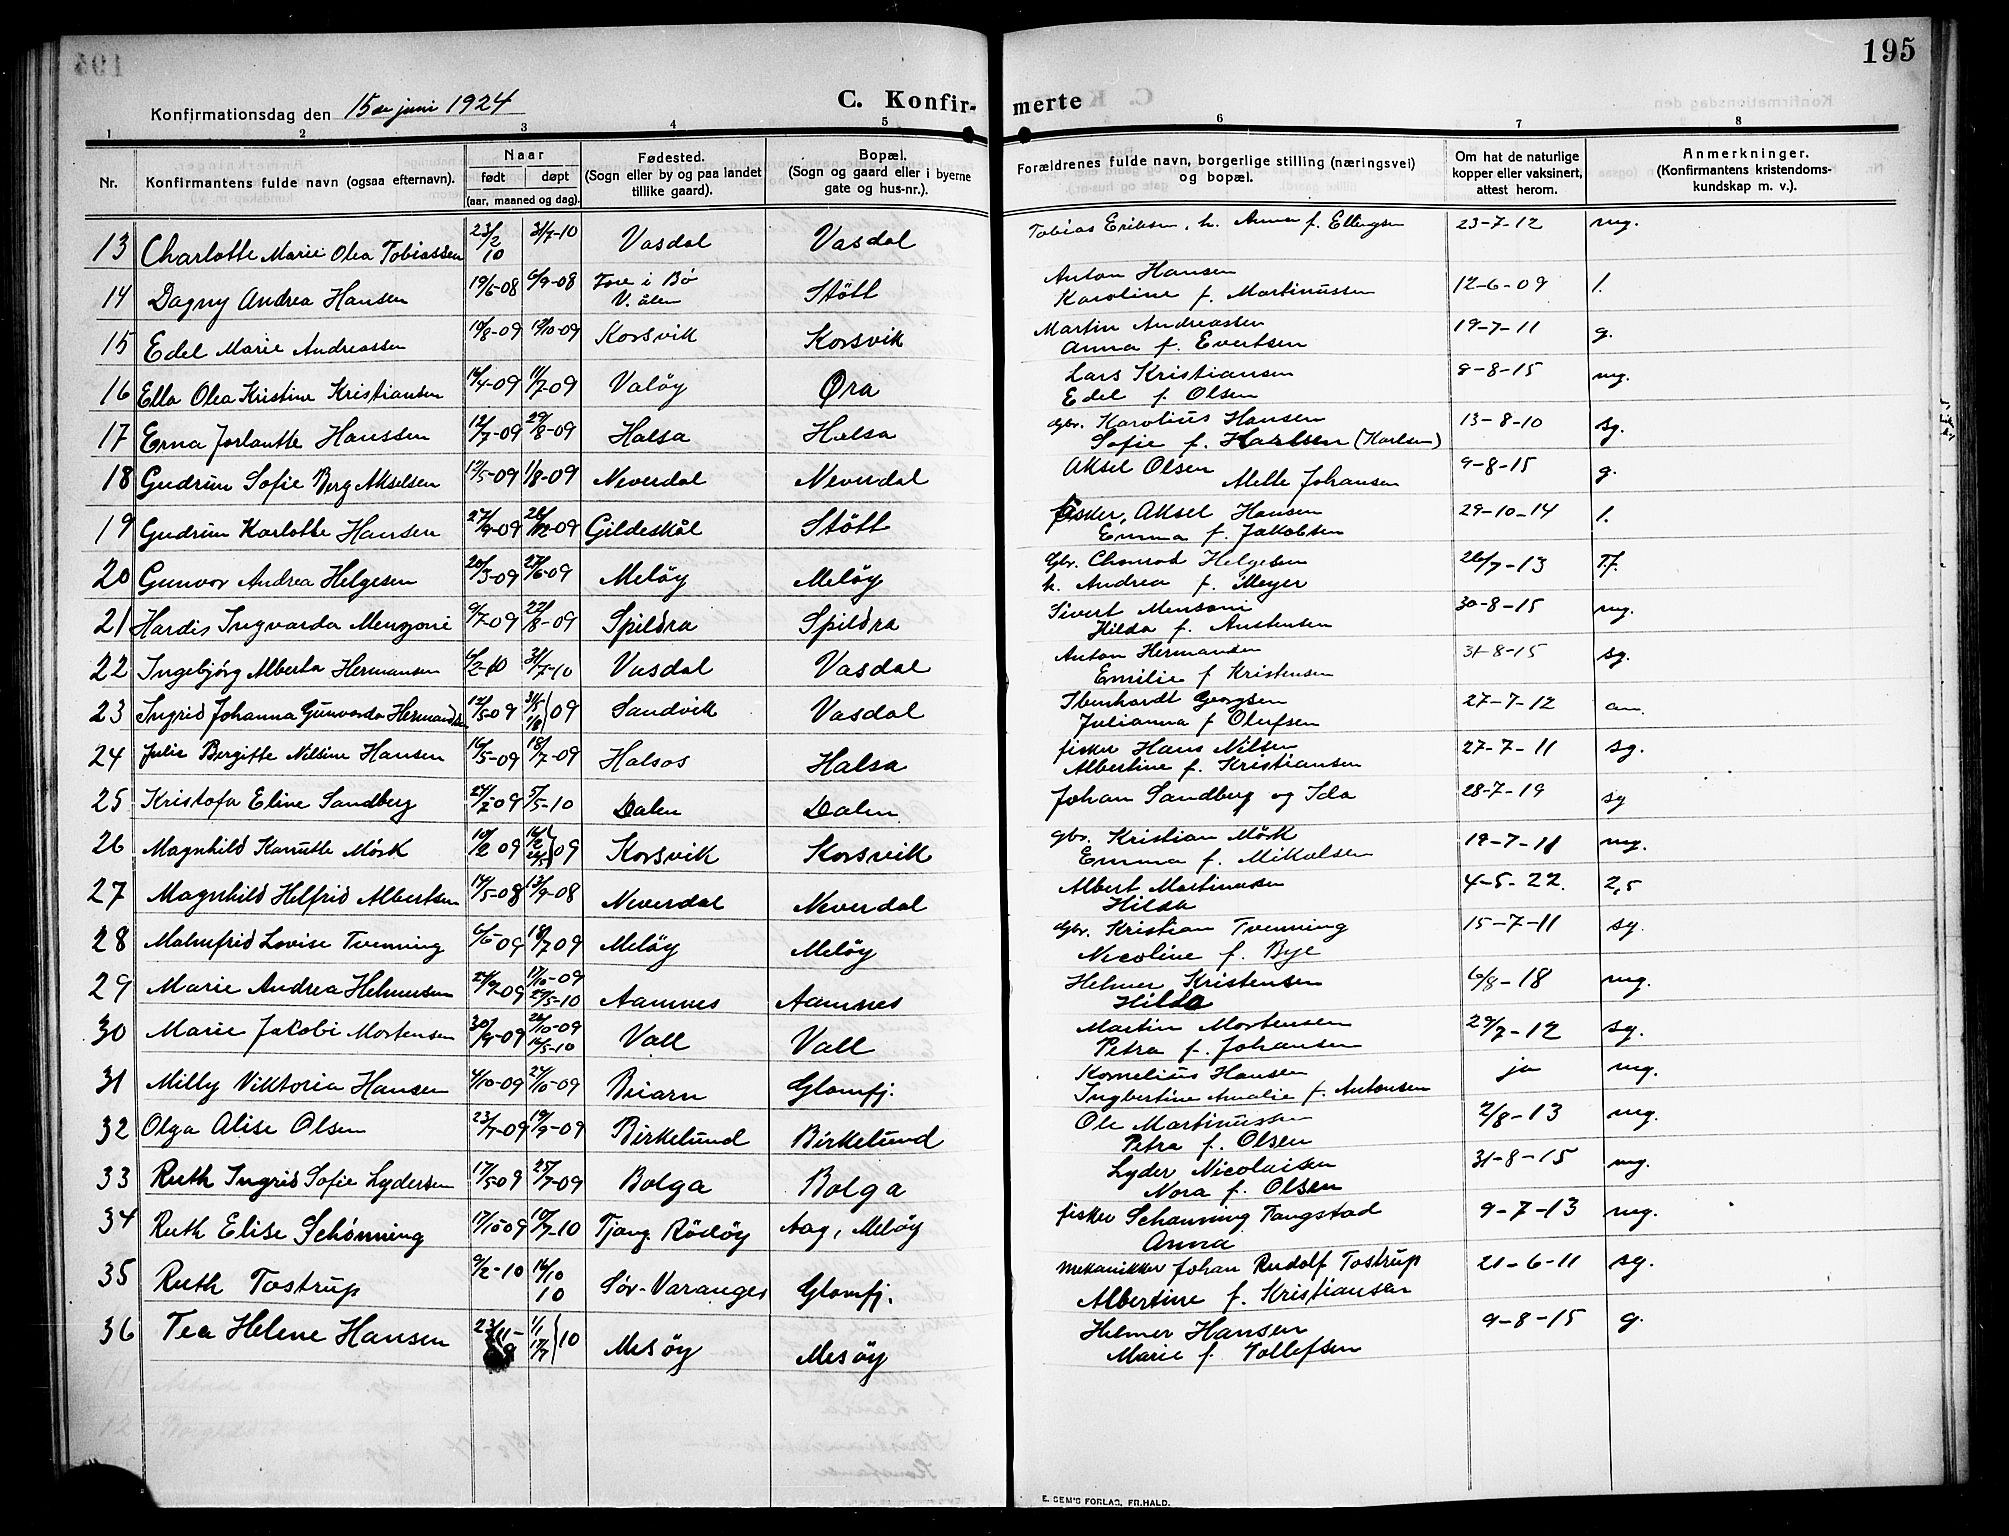 195
Konfirmationsdag den 15de juni 1924
C. Konfir- merte
1 2 3 4 5 6 7 8
Nr. Konfirmantens fulde navn (ogsaa efternavn). Naar født døpt (aar, maaned og dag). Fødested. (Sogn eller by og paa landet tillike gaard). Bopæl. (Sogn og gaard eller i byerne gate og hus-nr.). Forældrenes fulde navn, borgerlige stilling (næringsvei) og bopæl. Om hat de naturlige kopper eller vaksinert, attest herom. Anmerkninger. (Konfirmantens kristendoms-kundskap m. v.).
13 Charlotte Marie Olea Tobiassen 23/2 10 31/7-10 Vasdal Vasdal Tobias Eriksen, h. Anna f. Ellingsen 23-7-12 mg.
14 Dagny Andrea Hansen 19/6-08 6/9-08 Fore i Bø V. ålen Stött Anton Hansen Karoline f. Martinussen 12-6-09 l.
15 Edel Marie Andreassen 10/8-09 19/10-09 Korsvik Korsvik Martin Andreassen Anna f. Evertsen 19-7-11 g.
16 Ella Olea Kristine Kristiansen 16/4-09 11/7-09 Valöy Øra Lars Kristiansen Edel f. Olsen 9-8-15 mg.
17 Erna Jorlantte Hanssen 12/7-09 29/8-09 Halsa Halsa gbr. Karolius Hansen Sofie f. Karlsen (Karlsen) 13-8-10 sg.
18 Gudrun Sofie Berg Akselsen 12/5-09 1/8-09 Neverdal Neverdal Aksel Olsen Melle Johansen 9-8-15 g.
19 Gudrun Karlotte Hansen 27/9-09 26/12-09 Gildeskål Stött fisker, Aksel Hansen Emma f. Jakobsen 29-10-14 l.
20 Gunvor Andrea Helgesen 20/3-09 27/6-09 Melöy Melöy Gbr. Chonrad Helgesen h. Andrea f. Meyer 26/7-13 T.f.
21 Hardis Ingvarda Menzoni 9/7-09 22/8-09 Spildra Spildra Sivert Mensoni Hilda f. Austensen 30-8-15 mg.
22 Ingebjørg Alberta Hermansen 6/2-10 31/7-10 Vasdal Vasdal Anton Hermansen Emilie f Kristensen 31-8-15 sg.
23 Ingrid Johanna Gunvarda 12/5 09 31/5 1/8 } 09 Sandvik Vasdal Ibenhardt Georgsen Julianna f Olufsen 27-7-12 an.
24 Julie Bergitte Nilsine Hansen 16/5-09 18/7-09 Halsos Halsa fisker Hans Nilsen Albertine f. Kristiansen 27-7-11 sg.
25 Kristofa Eline Sandberg 24/2 09 5/5-10 Dalen Dalen Johan Sandberg og Ida 28-7-19 sg
26 Magnhild Mörk 10/2 09 09 Korsvik Korsvik gbr. Kristian Mörk Emma f. Mikalsen 19-7-11 mg.
27 Magnhild Helfrid Albertsen 14/5-08 13/9-08 Neverdal Neverdal Albert Martinussen Hilda 4-5-22. 2,5
28 Malmfrid Lovise Tvenning 6/5-09 18/7 09 Melöy Melöy gbr. Kristian Tvenning Nicoline f. Bye 15-7-11 sg.
29 Marie Andrea Helmersen 24/9-09 17/10-09 29/5-10 Aamnes Aamnes Helmer Kristensen Hilda 6/8-18 mg.
30 Marie Jakobi Mortensen 30/9-09 26/10-09 16/5-10 Vall Vall Martin Mortensen Petra f. Johansen 29/7-12 sg.
31 Milly Viktoria Hansen 4/10-09 24/10-09 Beiarn Glomfj. Kornelius Hansen Ingbertine Amalie f. Antonsen ja mg.
32 Olga Alise Olsen 23/7-09 19/9-09 Birkelund Birkelund Ole Martinussen Petra f. Olsen 2/8-13 mg.
33 Ruth Ingrid Sofie Lydersen 17/5 09 25/7-09 Bolga Bolga Lyder Nicolaisen Nora f. Olsen 31-8-15 mg.
34 Ruth Elise Schönning 17/10 09 10/7-10 Tjong Rödöy Aag, Melöy fisker Schønning Tangstad Anna 9-7-13 mg.
35 Ruth Tostrup 9/2-10 16/10 10 Sör-Varanger Glomfj. mekanikker Johan Rudolf Tostrup Albertine f. Kristiansen 21-6-11 sg.
36 Tea Helene Hansen 23/11- 1/1 17/7 } 10 Mesöy Mesöy Helmer Hansen Marie f. Tollefsen 9-8-15 g.
E. SEM'S FORLAG, FR.HALD.